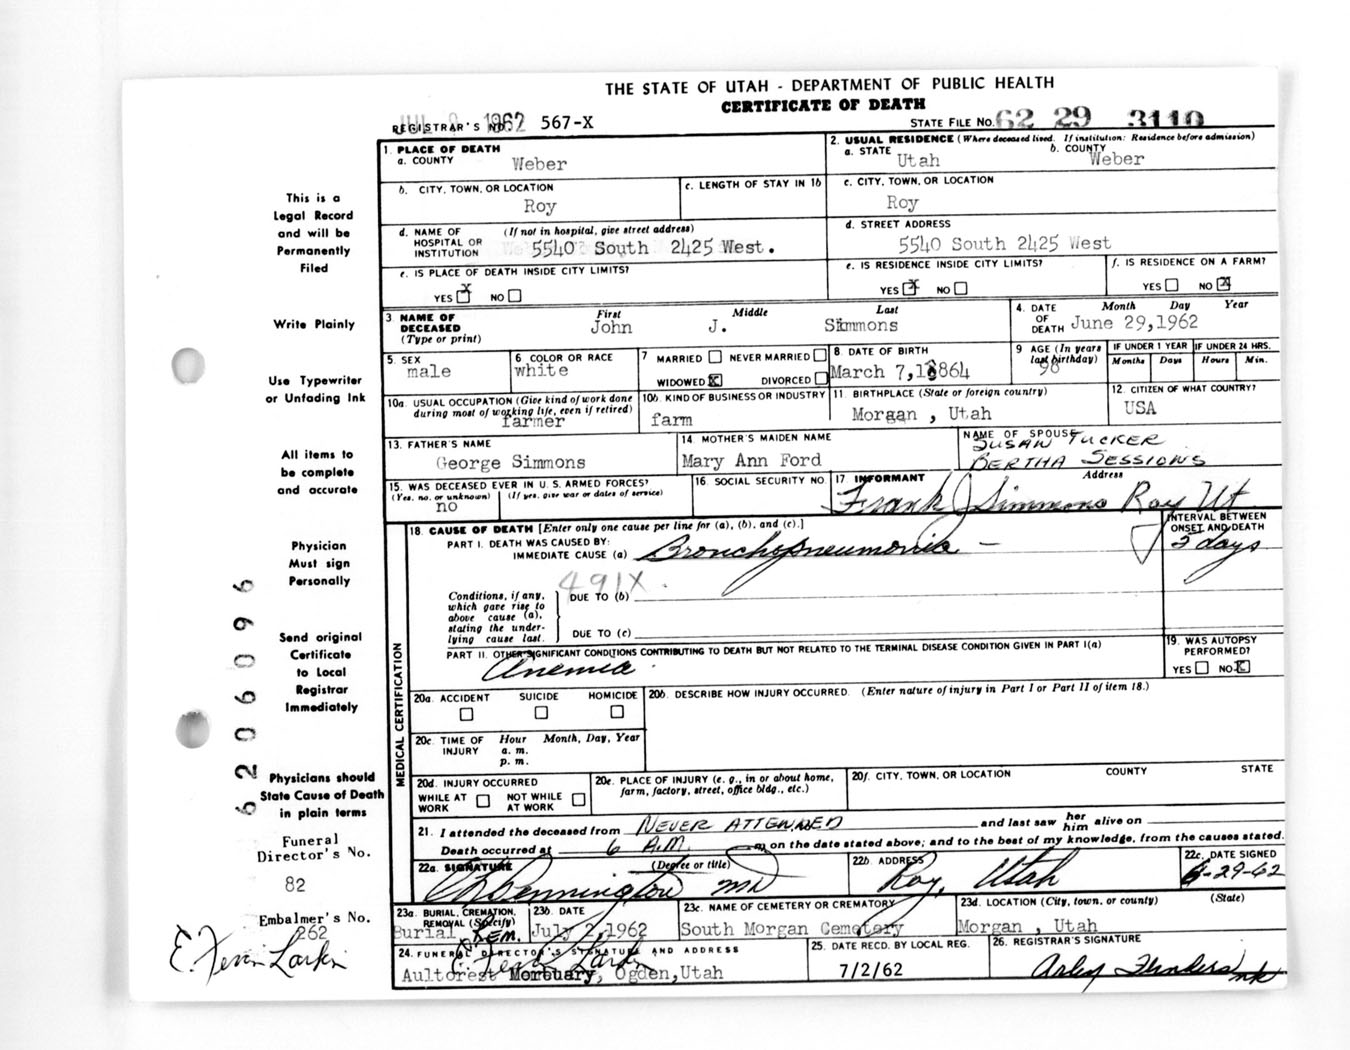 THE STATE OF UTAH - DEPARTMENT OF PUBLIC HEALTH
CERTIFICATE OF DEATH
REGISTRAR'S NO. 567-X
JUL 1962
STATE FILE NO. 62 29 3110
1. PLACE OF DEATH
a. COUNTY Weber
2. USUAL RESIDENCE (Where deceased lived. If institution: Residence before admission)
a. STATE Utah b. COUNTY Weber
b. CITY, TOWN, OR LOCATION Roy
c. LENGTH OF STAY IN 1b
c. CITY, TOWN, OR LOCATION Roy
d. NAME OF HOSPITAL OR INSTITUTION (If not in hospital, give street address) 5540 South 2425 West.
d. STREET ADDRESS 5540 South 2425 West
e. IS PLACE OF DEATH INSIDE CITY LIMITS? YES X NO
e. IS RESIDENCE INSIDE CITY LIMITS? YES X NO
f. IS RESIDENCE ON A FARM? YES NO X
3. NAME OF DECEASED (Type or print) First John Middle J. Last Simmons
4. DATE OF DEATH Month Day Year June 29,1962
5. SEX male
6. COLOR OR RACE white
7 MARRIED NEVER MARRIED WIDOWED X DIVORCED
8. DATE OF BIRTH March 7,1864
9 AGE (In years last birthday) 98
IF UNDER 1 YEAR Months Days
IF UNDER 24 HRS. Hours Min.
10a. USUAL OCCUPATION (Give kind of work done during most of working life, even if retired) farmer
10b. KIND OF BUSINESS OR INDUSTRY farm
11. BIRTHPLACE (State or foreign country) Morgan , Utah
12. CITIZEN OF WHAT COUNTRY? USA
13. FATHER'S NAME George Simmons
14. MOTHER'S MAIDEN NAME Mary Ann Ford
NAME OF SPOUSE SUSAN TUCKER
BERTHA SESSIONS
15. WAS DECEASED EVER IN U. S. ARMED FORCES? (Yes, no, or unknown) (If yes, give war or dates of service) no
16. SOCIAL SECURITY NO.
17 INFORMANT Address Frank J Simmons Roy Ut
MEDICAL CERTIFICATION
18. CAUSE OF DEATH [Enter only one cause per line for (a), (b), and (c).]
INTERVAL BETWEEN ONSET AND DEATH
PART I. DEATH WAS CAUSED BY:
IMMEDIATE CAUSE (a) Bronchopneumonia - 2 days
491X.
Conditions, if any, which gave rise to above cause (a), stating the underlying cause last.
DUE TO (b)
DUE TO (c)
PART II. OTHER SIGNIFICANT CONDITIONS CONTRIBUTING TO DEATH BUT NOT RELATED TO THE TERMINAL DISEASE CONDITION GIVEN IN PART I(a)
Anemia.
19. WAS AUTOPSY PERFORMED? YES NO X
20a. ACCIDENT SUICIDE HOMICIDE
20b. DESCRIBE HOW INJURY OCCURRED. (Enter nature of injury in Part I or Part II of item 18.)
20c. TIME OF INJURY Hour a. m. p. m. Month, Day, Year
20d. INJURY OCCURRED WHILE AT WORK NOT WHILE AT WORK
20e. PLACE OF INJURY (e. g., in or about home, farm, factory, street, office bldg., etc.)
20f. CITY, TOWN, OR LOCATION COUNTY STATE
21. I attended the deceased from NEVER ATTENDED and last saw her him alive on
Death occurred at 6 A.M. m on the date stated above; and to the best of my knowledge, from the causes stated.
22a. SIGNATURE (Degree or title) Bennington MD
22b. ADDRESS Roy, Utah
22c. DATE SIGNED 6-29-62
23a. BURIAL, CREMATION, REMOVAL (Specify) Burial Rem.
23b. DATE July 2,1962
23c. NAME OF CEMETERY OR CREMATORY South Morgan Cemetery
23d. LOCATION (City, town, or county) (State) Morgan , Utah
24. FUNERAL DIRECTOR'S SIGNATURE AND ADDRESS E. Kevin Larkin
Aultorest Mortuary, Ogden,Utah
25. DATE RECD. BY LOCAL REG. 7/2/62
26. REGISTRAR'S SIGNATURE Arley Flinders mk
This is a
Legal Record
and will be
Permanently
Filed
Write Plainly
Use Typewriter
or Unfading Ink
All items to
be complete
and accurate
Physician
Must sign
Personally
Send original
Certificate
to Local
Registrar
Immediately
Physicians should
State Cause of Death
in plain terms
Funeral
Director's No.
82
Embalmer's No.
262
E. Kevin Larkin
6 2 0 6 0 9 6